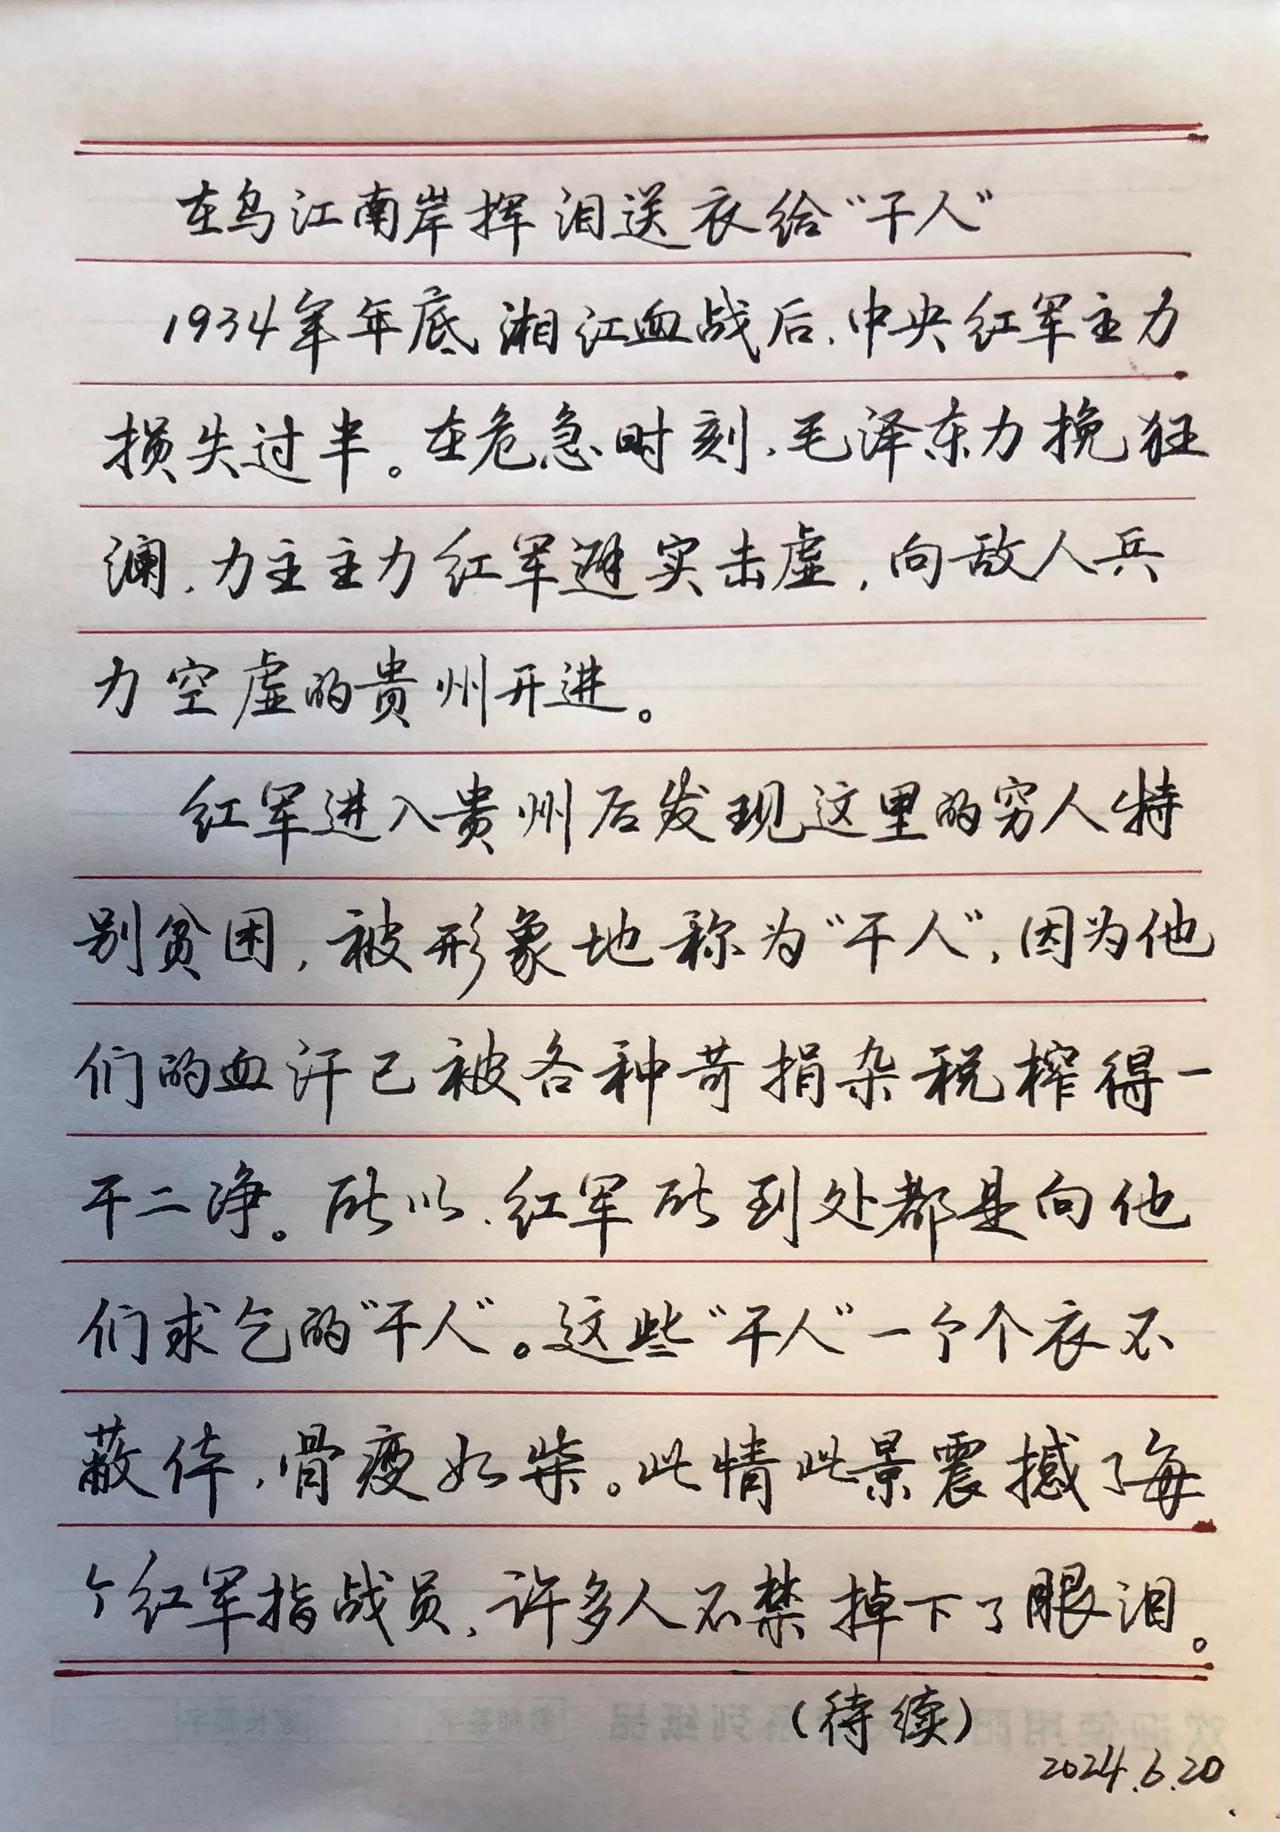 在乌江南岸挥泪送衣给“干人”
1934年年底湘江血战后，中央红军主力
损失过半。在危急时刻，毛泽东力挽狂
澜，力主主力红军避实击虚，向敌人兵
力空虚的贵州开进。
红军进入贵州后发现这里的穷人特
别贫困，被形象地称为“干人”，因为他
们的血汗已被各种苛捐杂税榨得一
干二净。所以，红军所到处都是向他
们求乞的“干人”。这些“干人”一个个衣不
蔽体，骨瘦如柴。此情此景震撼了每
个红军指战员，许多人不禁掉下了眼泪。
（待续）
2024.6.20